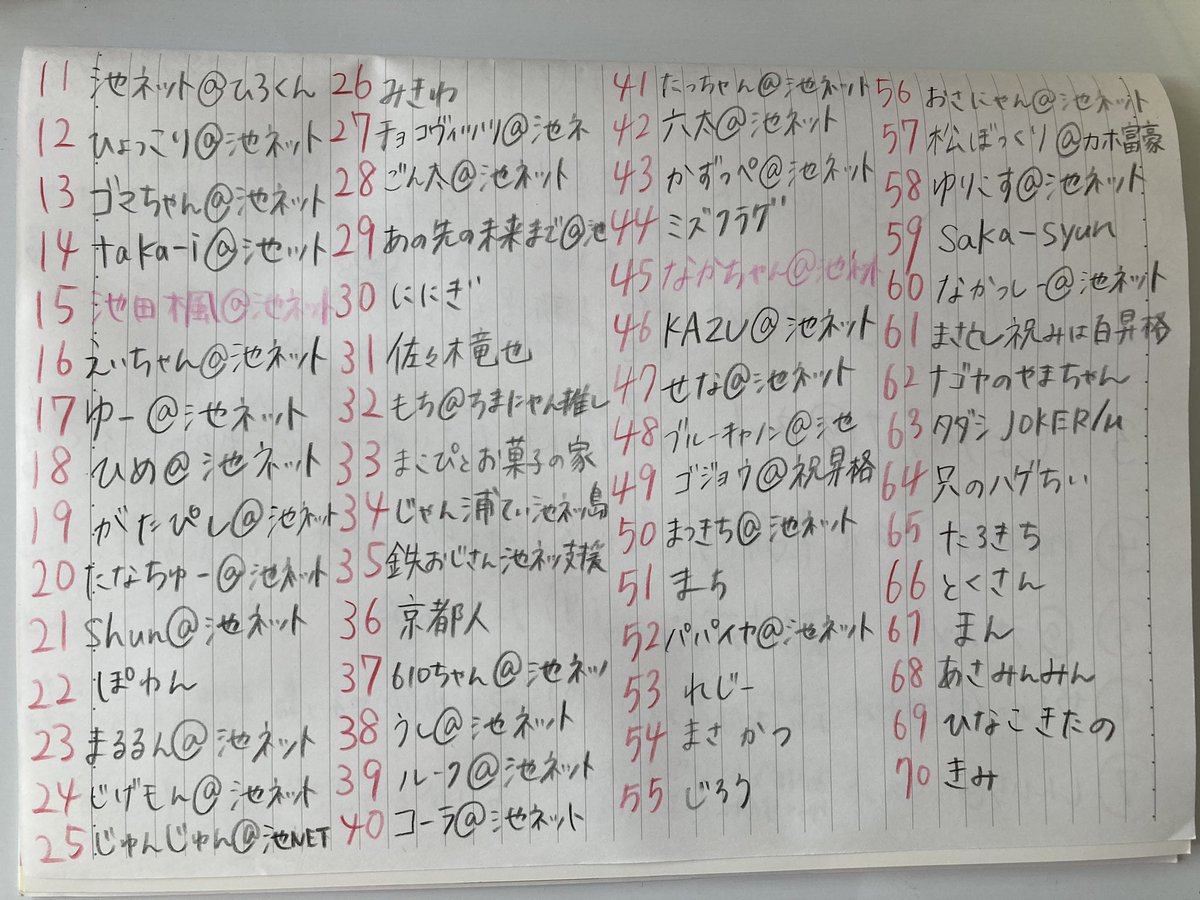 11 池ネット@ひろくん
12 ひょっこり@池ネット
13 ゴマちゃん@池ネット
14 taka-i@池ット
15 池田楓@池ネット
16 えいちゃん@池ネット
17 ゆー@池ネット
18 ひめ@池ネット
19 がたぴし@池ネット
20 たなちゅー@池ネット
21 Shun@池ネット
22 ぽわん
23 まるるん@池ネット
24 じげもん@池ネット
25 じゅんじゅん@池NET
26 みきわ
27 チョコヴィッツリ@池ネ
28 ごん太@池ネット
29 あの先の未来まで@池
30 ににぎ
31 佐々木竜也
32 もち@ちまにゃん推し
33 まこぴとお菓子の家
34 じゃん浦てい池ネッ島
35 鉄おじさん池ネッ支援
36 京都人
37 610ちゃん@池ネッ
38 うし@池ネット
39 ルーク@池ネット
40 コーラ@池ネット
41 たっちゃん@池ネット
42 六太@池ネット
43 かずっぺ@池ネット
44 ミズフラグ
45 なかちゃん@池ネット
46 KAZU@池ネット
47 せな@池ネット
48 ブルーキャノン@池
49 ゴジョウ@祝昇格
50 まっきち@池ネット
51 まち
52 パパイヤ@池ネット
53 れじー
54 まさかつ
55 じろう
56 おさにゃん@池ネット
57 松ぼっくり@カホ富豪
58 ゆりこす@池ネット
59 saka-syun
60 なかっしー@池ネット
61 まさとし祝みは百昇格
62 ナゴヤのやまちゃん
63 タダシJOKER/μ
64 只のハゲちぃ
65 たろきち
66 とくさん
67 まん
68 あさみんみん
69 ひなこきたの
70 きみ